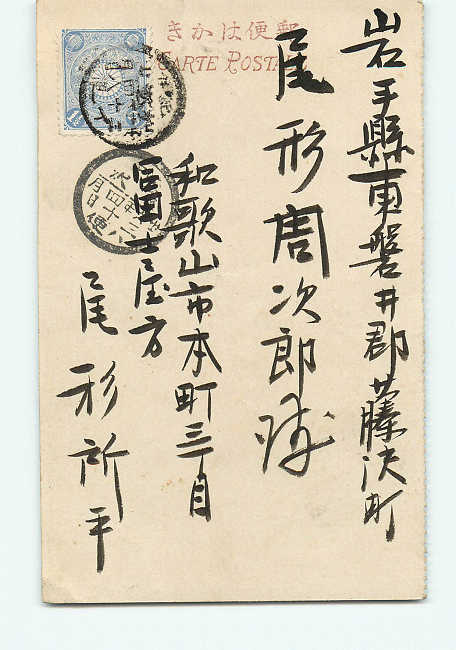 郵便はかき
CARTE POSTA
岩手縣東磐井郡藤沢町
尾形周次郎様
和歌山市本町三丁目
冨士屋方
尾形所平